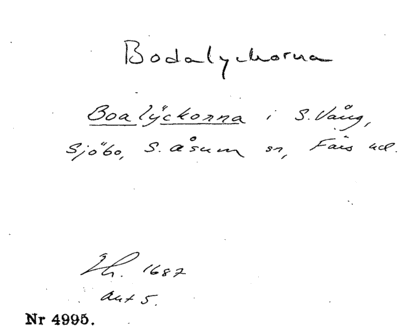 Bodalyckorna
Boalÿckorna i S. Vång,
Sjöbo, S. Åsum sn, Färs hd.
1687
Akt 5.
Nr 4995.